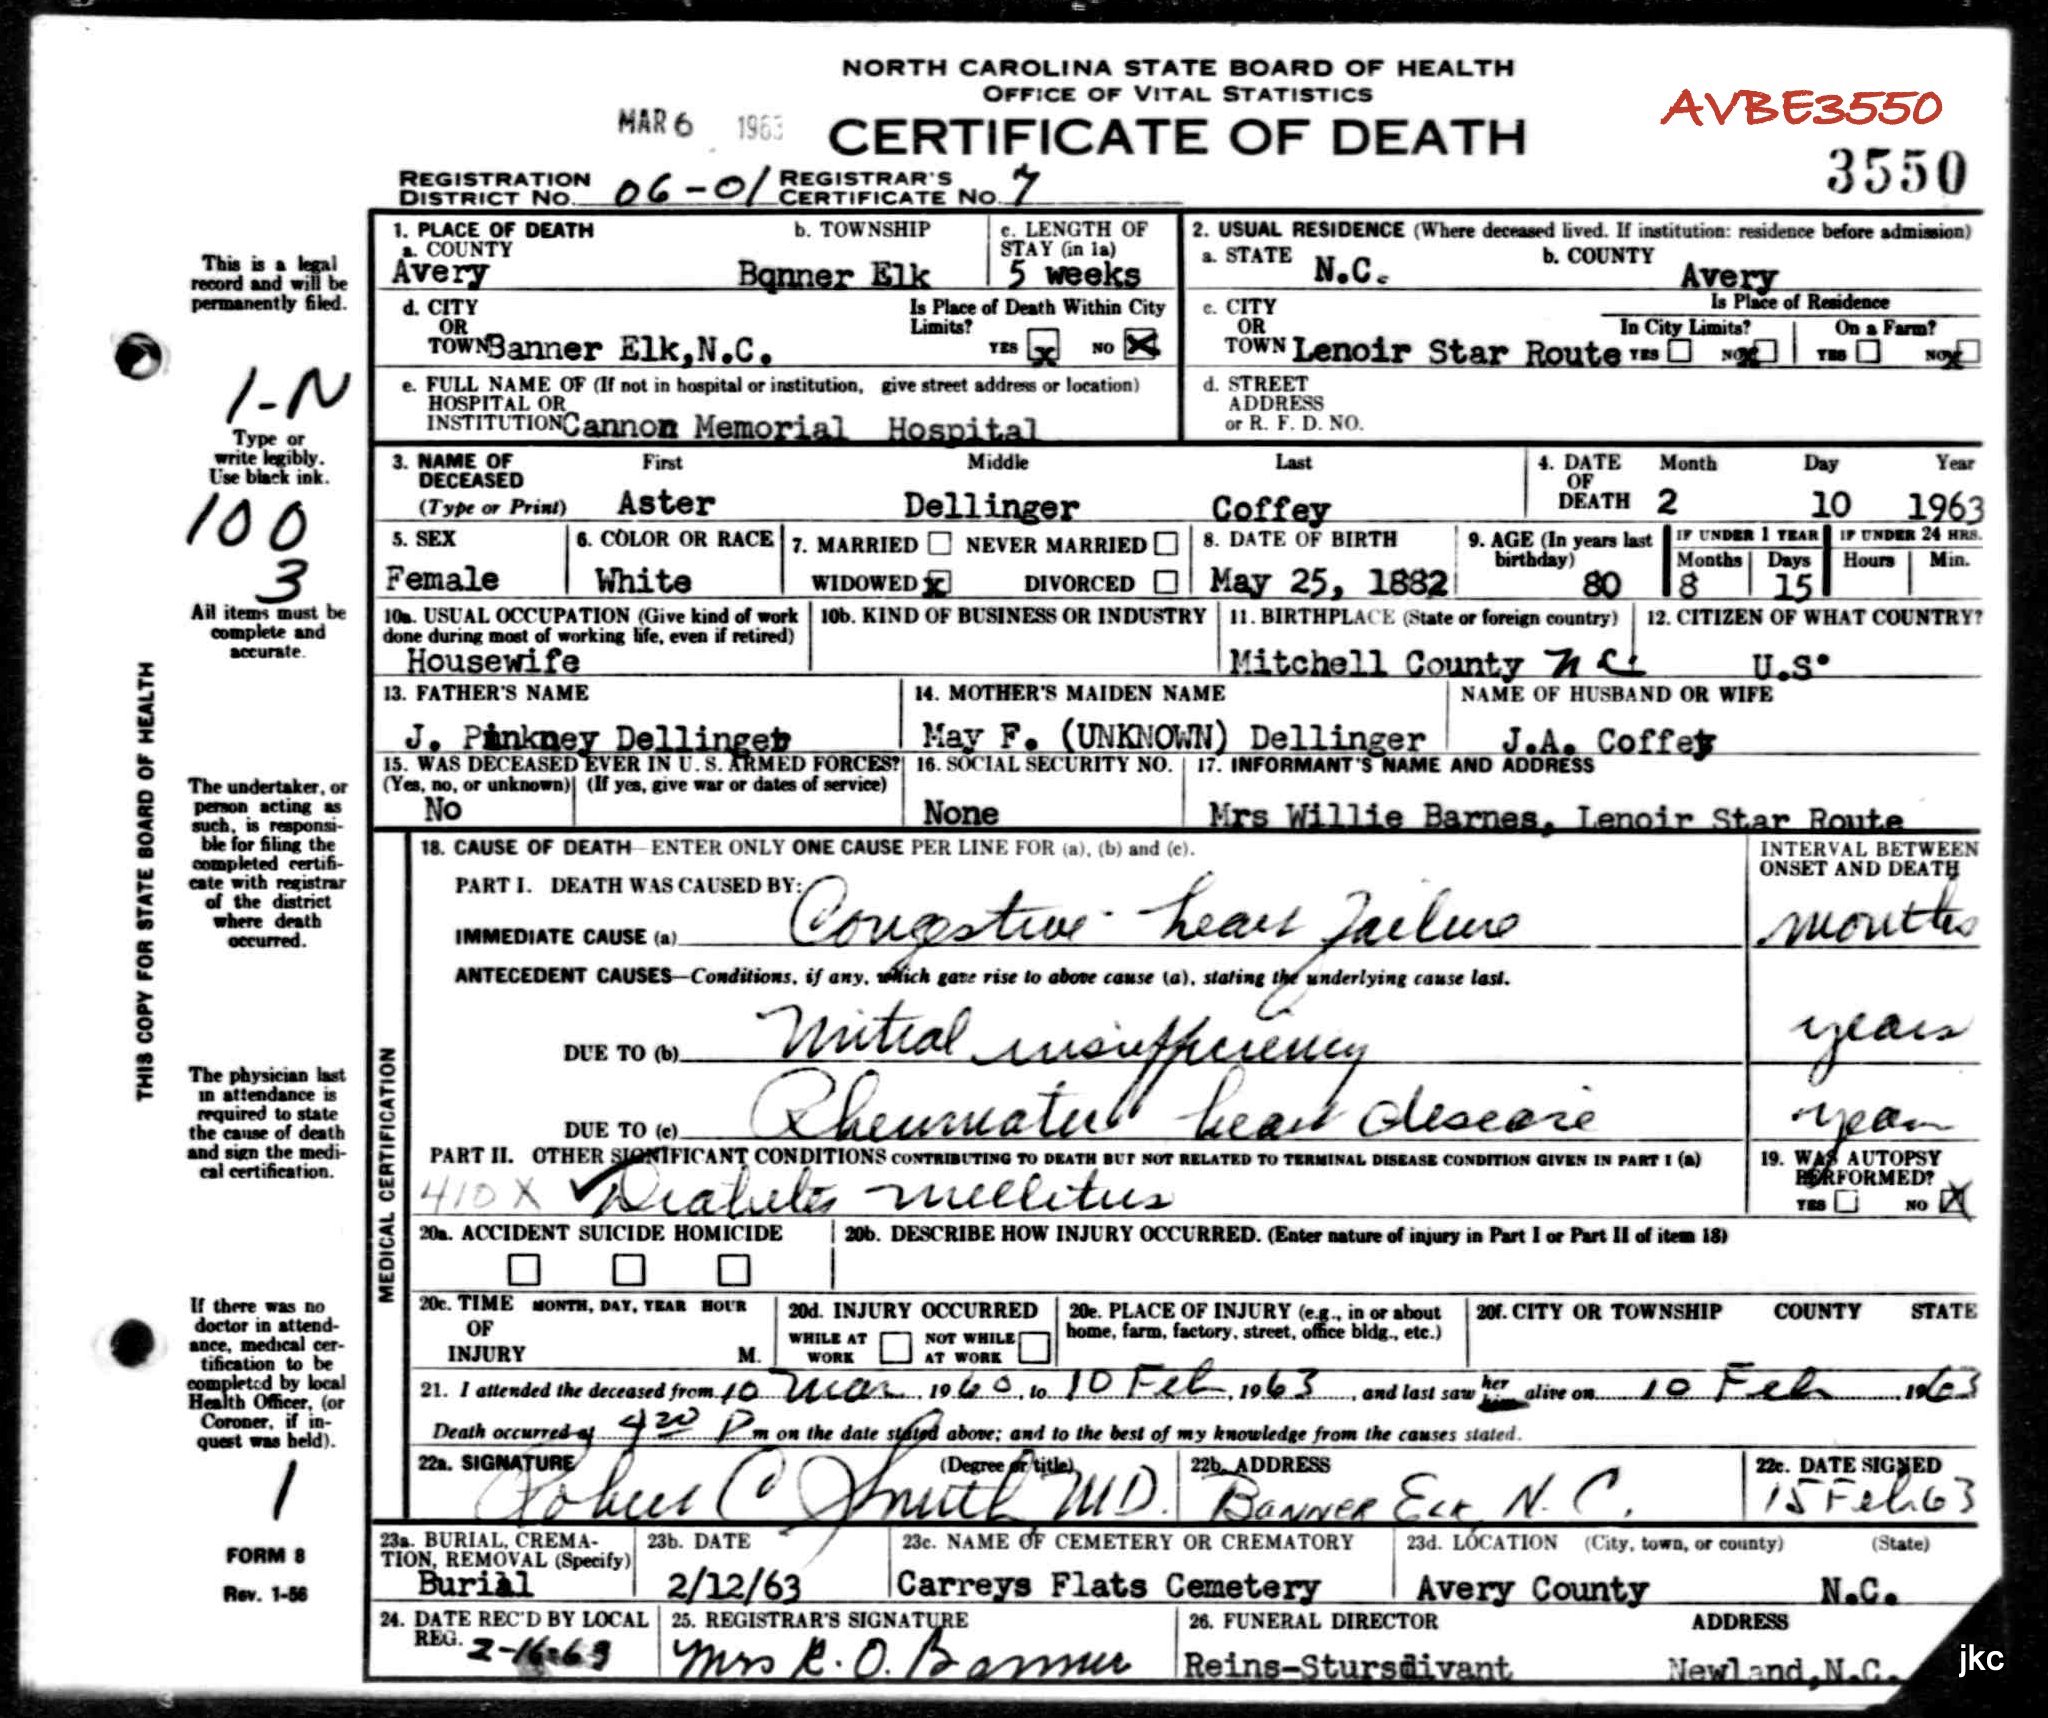 NORTH CAROLINA STATE BOARD OF HEALTH
OFFICE OF VITAL STATISTICS
AVBE3550
MAR 6 1963
CERTIFICATE OF DEATH
3550
REGISTRATION DISTRICT NO. 06-01 REGISTRAR'S CERTIFICATE NO. 7
This is a legal record and will be permanently filed.
1-N
Type or write legibly. Use black ink.
100
3
All items must be complete and accurate.
THIS COPY FOR STATE BOARD OF HEALTH
The undertaker, or person acting as such, is responsible for filing the completed certificate with registrar of the district where death occurred.
The physician last in attendance is required to state the cause of death and sign the medical certification.
If there was no doctor in attendance, medical certification to be completed by local Health Officer, (or Coroner, if inquest was held).
1
FORM 8
Rev. 1-56
1. PLACE OF DEATH
a. COUNTY Avery
b. TOWNSHIP Banner Elk
c. LENGTH OF STAY (in 1a) 5 weeks
2. USUAL RESIDENCE (Where deceased lived. If institution: residence before admission)
a. STATE N.C.
b. COUNTY Avery
d. CITY OR TOWN Banner Elk,N.C.
Is Place of Death Within City Limits? YES x NO X
c. CITY OR TOWN Lenoir Star Route
Is Place of Residence
In City Limits? YES NO x
On a Farm? YES NO x
e. FULL NAME OF (If not in hospital or institution, give street address or location)
HOSPITAL OR INSTITUTION Cannon Memorial Hospital
d. STREET ADDRESS or R. F. D. NO.
3. NAME OF DECEASED (Type or Print) First Aster Middle Dellinger Last Coffey
4. DATE OF DEATH Month 2 Day 10 Year 1963
5. SEX Female
6. COLOR OR RACE White
7. MARRIED NEVER MARRIED WIDOWED x DIVORCED
8. DATE OF BIRTH May 25, 1882
9. AGE (In years last birthday) 80
IF UNDER 1 YEAR Months 8 Days 15
IF UNDER 24 HRS. Hours Min.
10a. USUAL OCCUPATION (Give kind of work done during most of working life, even if retired) Housewife
10b. KIND OF BUSINESS OR INDUSTRY
11. BIRTHPLACE (State or foreign country) Mitchell County N C.
12. CITIZEN OF WHAT COUNTRY? U.S.
13. FATHER'S NAME J. Pinkney Dellinger
14. MOTHER'S MAIDEN NAME May F. (UNKNOWN) Dellinger
NAME OF HUSBAND OR WIFE J.A. Coffey
15. WAS DECEASED EVER IN U. S. ARMED FORCES? (Yes, no, or unknown) (If yes, give war or dates of service) No
16. SOCIAL SECURITY NO. None
17. INFORMANT'S NAME AND ADDRESS Mrs Willie Barnes, Lenoir Star Route
MEDICAL CERTIFICATION
18. CAUSE OF DEATH—ENTER ONLY ONE CAUSE PER LINE FOR (a), (b) and (c).
INTERVAL BETWEEN ONSET AND DEATH
PART I. DEATH WAS CAUSED BY:
IMMEDIATE CAUSE (a) Congestive heart failure months
ANTECEDENT CAUSES—Conditions, if any, which gave rise to above cause (a), stating the underlying cause last.
DUE TO (b) Mitral insufficiency years
DUE TO (c) Rheumatic heart disease years
PART II. OTHER SIGNIFICANT CONDITIONS CONTRIBUTING TO DEATH BUT NOT RELATED TO TERMINAL DISEASE CONDITION GIVEN IN PART I (a)
410X ✓ Diabetes mellitus
19. WAS AUTOPSY PERFORMED? YES NO X
20a. ACCIDENT SUICIDE HOMICIDE
20b. DESCRIBE HOW INJURY OCCURRED. (Enter nature of injury in Part I or Part II of item 18)
20c. TIME OF INJURY MONTH, DAY, YEAR HOUR M.
20d. INJURY OCCURRED WHILE AT WORK NOT WHILE AT WORK
20e. PLACE OF INJURY (e.g., in or about home, farm, factory, street, office bldg., etc.)
20f. CITY OR TOWNSHIP COUNTY STATE
21. I attended the deceased from 10 Mar, 1960, to 10 Feb, 1963, and last saw her him alive on 10 Feb 1963
Death occurred at 4 20 P m on the date stated above; and to the best of my knowledge from the causes stated.
22a. SIGNATURE (Degree or title) Robert C Smith MD.
22b. ADDRESS BANNER ELK N. C.
22c. DATE SIGNED 15 Feb 63
23a. BURIAL, CREMATION, REMOVAL (Specify) Burial
23b. DATE 2/12/63
23c. NAME OF CEMETERY OR CREMATORY Carreys Flats Cemetery
23d. LOCATION (City, town, or county) (State) Avery County N.C.
24. DATE REC'D BY LOCAL REG. 2-16-63
25. REGISTRAR'S SIGNATURE Mrs R. O. Banner
26. FUNERAL DIRECTOR ADDRESS Reins-Stursdivant Newland,N.C.
jkc